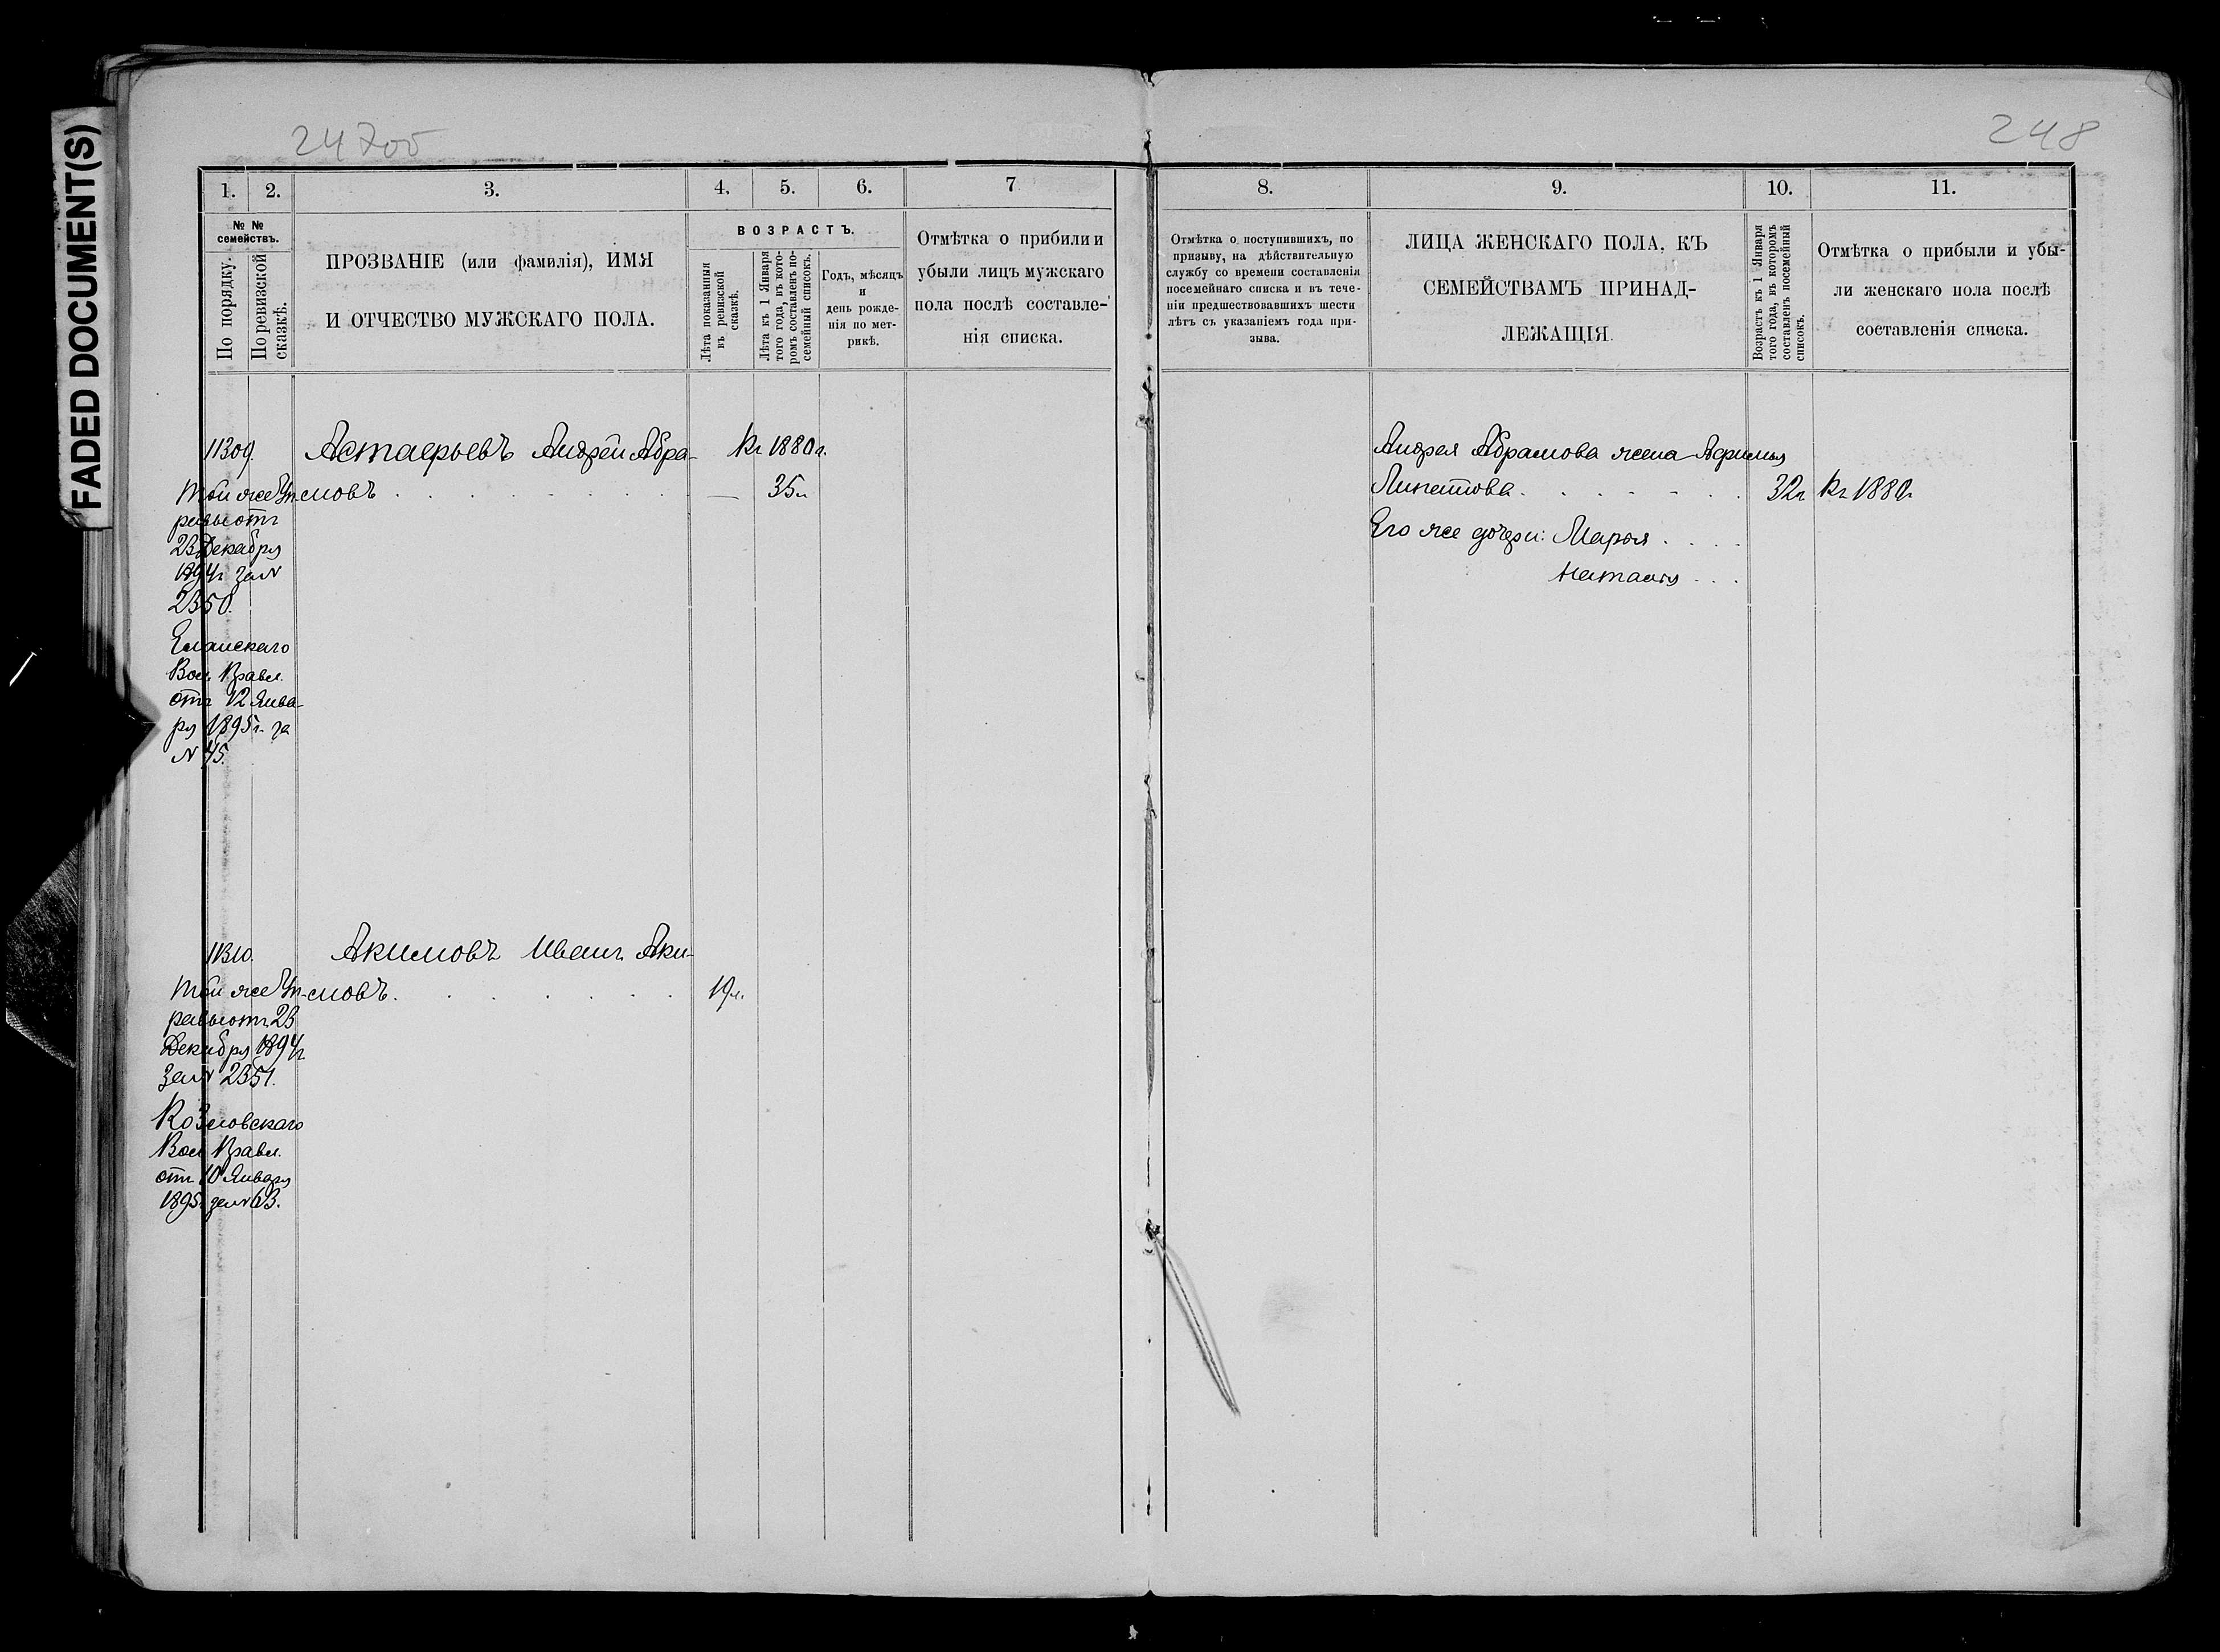 FADED DOCUMENT(S)
247об
248
1. 2. 3. 4. 5. 6. 7 8. 9. 10. 11.
№ №
семействъ.
По порядку.
По ревизской
сказкѣ.
ПРОЗВАНІЕ (или фамилія), ИМЯ
И ОТЧЕСТВО МУЖСКАГО ПОЛА.
ВОЗРАСТЪ.
Лѣта показанныя
въ ревизской
сказкѣ.
Лѣта къ 1 Января
того года, въ кото-
ромъ составленъ по-
семейный списокъ.
Годъ, мѣсяцъ
и
день рожде-
нія по мет-
рикѣ.
Отмѣтка о прибили и
убыли лицъ мужскаго
пола послѣ составле-
нія списка.
Отмѣтка о поступившихъ, по
призыву, на дѣйствительную
службу со времени составленія
посемейнаго списка и въ тече-
ніи предшествовавшихъ шести
лѣтъ съ указаніемъ года при-
зыва.
ЛИЦА ЖЕНСКАГО ПОЛА, КЪ
СЕМЕЙСТВАМЪ ПРИНАД-
ЛЕЖАЩІЯ.
Возрастъ къ 1 Января
того года, въ которомъ
составленъ посемейный
списокъ.
Отмѣтка о прибыли и убы-
ли женскаго пола послѣ
составленія списка.
11309. Астафьевъ Андрей Абра- Къ 1880 г.
мовъ — 35 л
Той же Уп-
равы отъ
23 Декабря
1894 г за №
2350.
Еланскаго
Вол. Правл.
отъ 12 Янва-
ря 1895 г. за
№ 45.
Андрея Абрамова жена
32 г Къ 1880 г
Его же дочери: Марья
Наталья
11310. Акимовъ Иванъ Аки-
мовъ. 19 л.
Той же Уп-
равы отъ 23
Декабря 1894 г
за № 2351.
Козловскаго
Вол. Правл.
отъ 10 Января
1895 г за № 63.